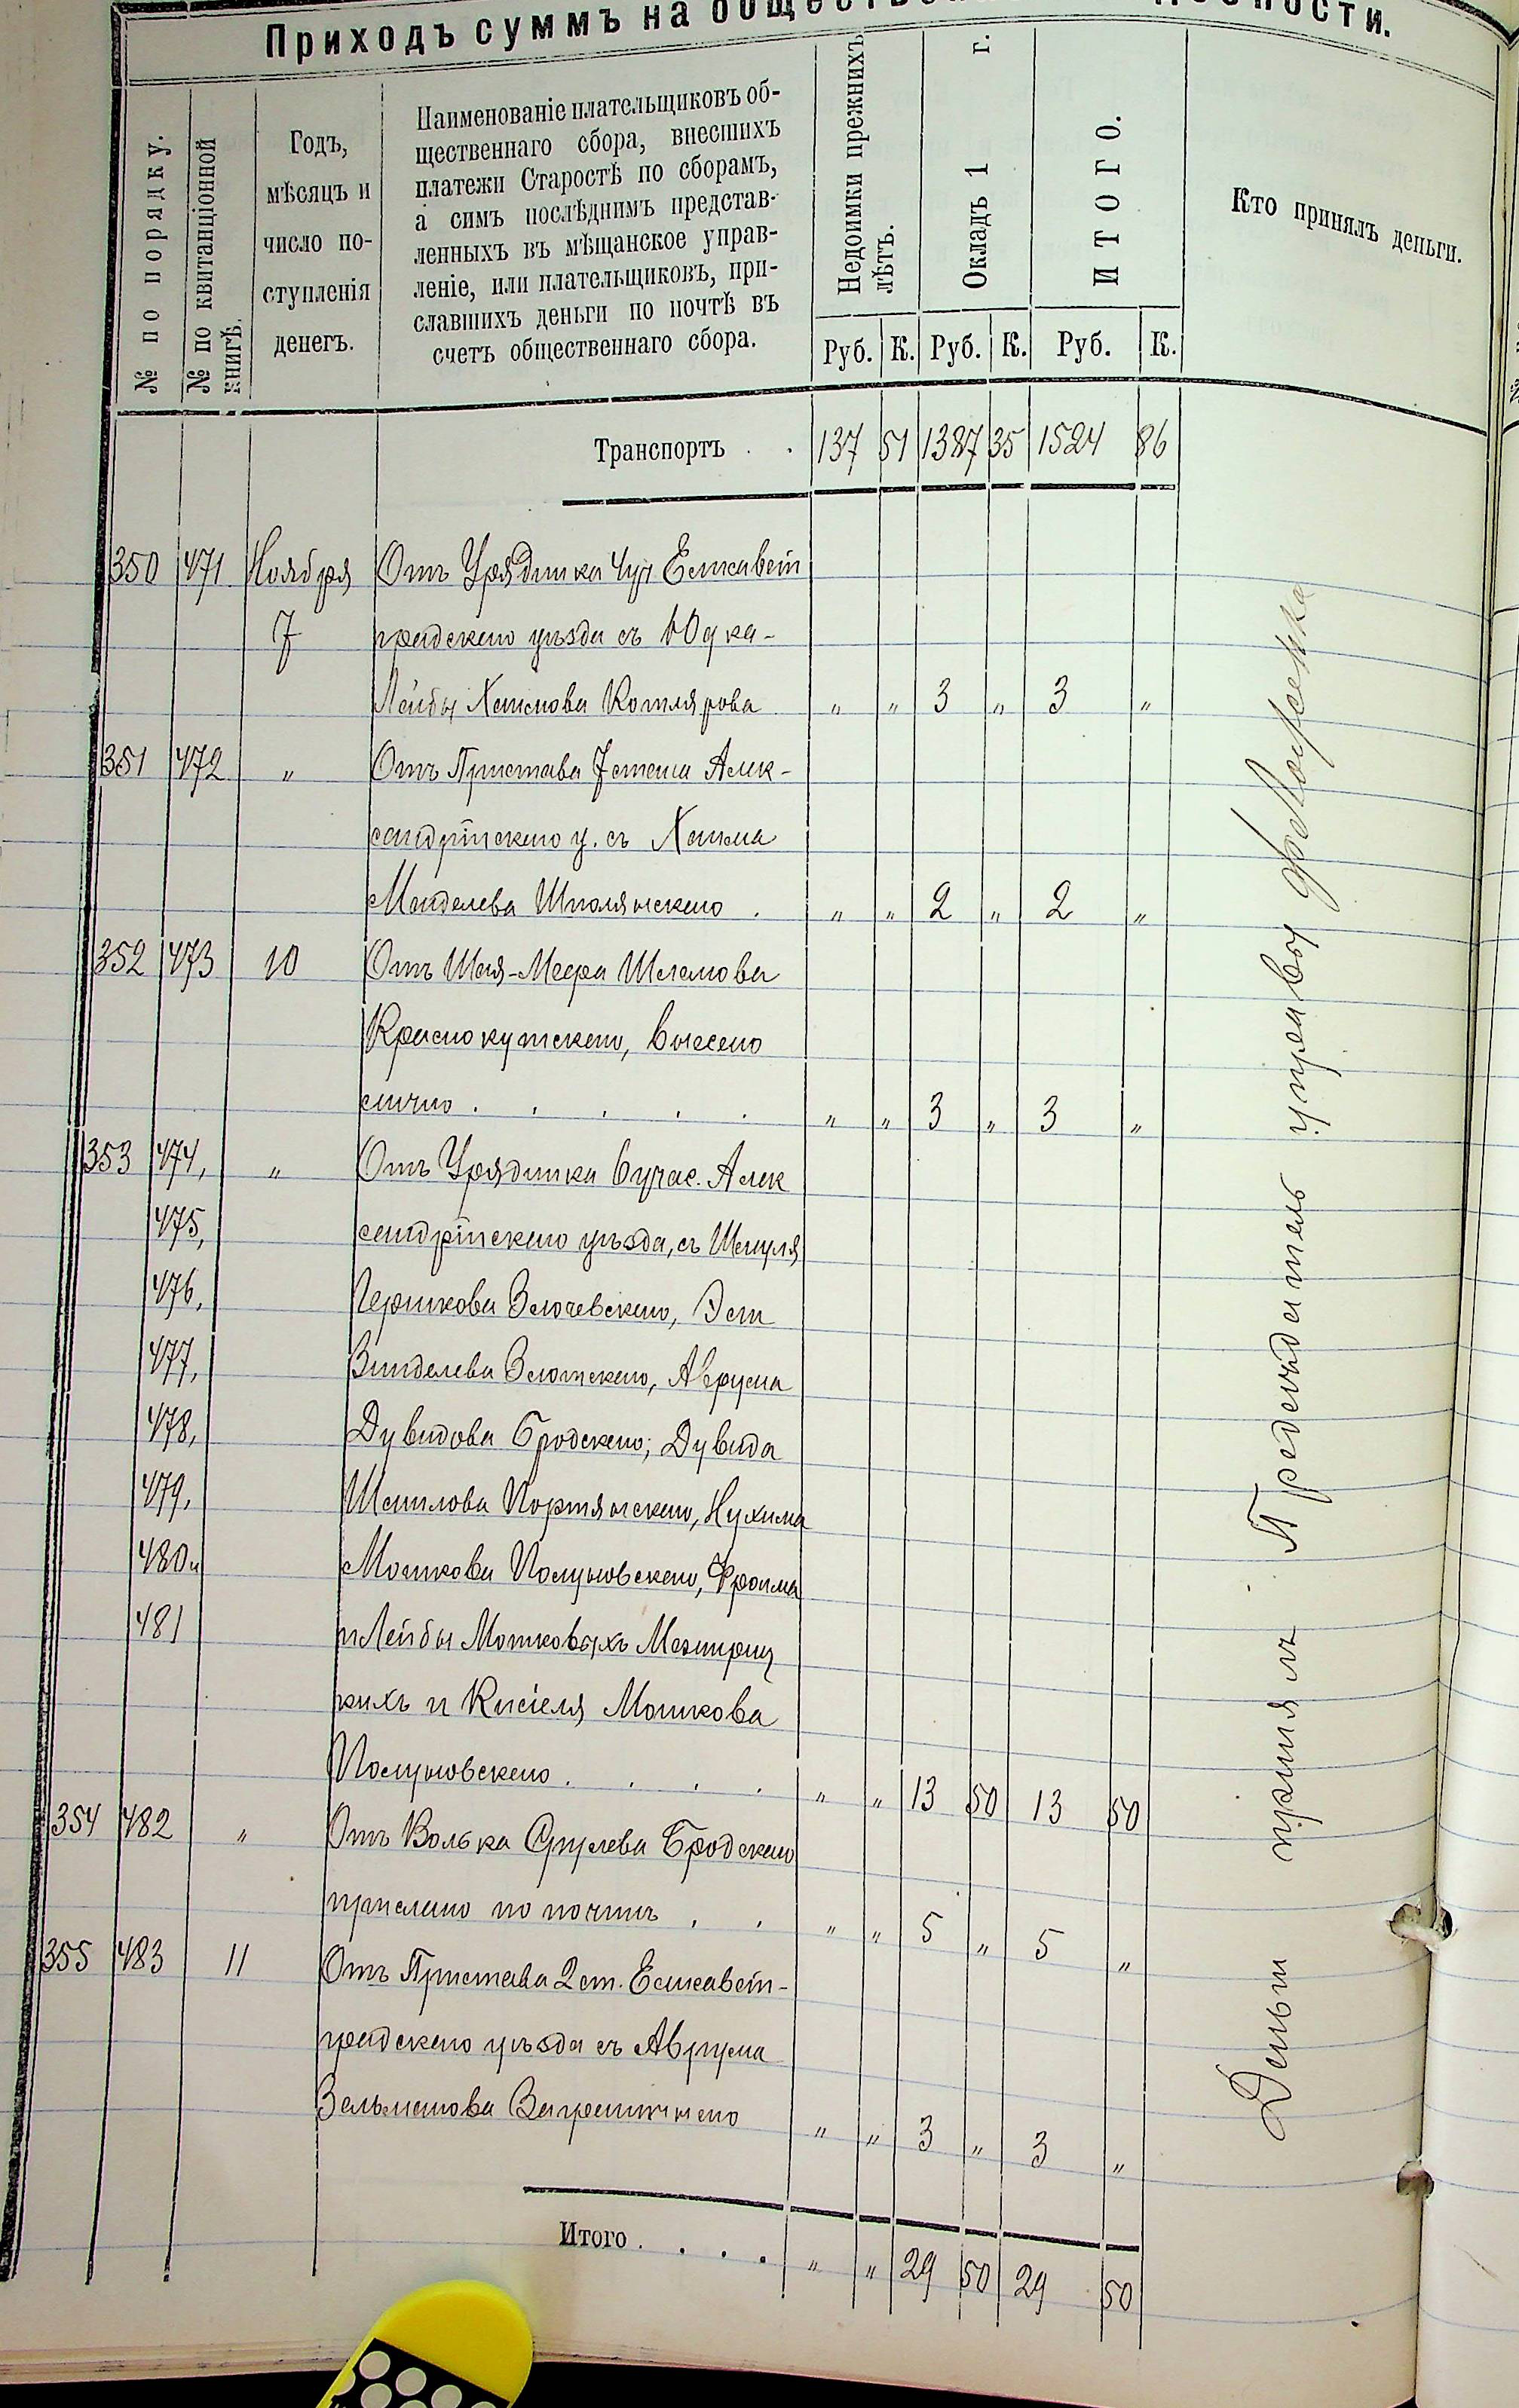 Приходъ суммъ на
№ по порядку.
№ по квитанціонной
книгѣ.
Годъ,
мѣсяцъ и
число по-
ступленія
денегъ.
Наименованіе плательщиковъ об-
щественнаго сбора, внесшихъ
платежи Старостѣ по сборамъ,
а симъ послѣднимъ представ-
ленныхъ въ мѣщанское управ-
леніе, или плательщиковъ, при-
славшихъ деньги по почтѣ въ
счетъ общественнаго сбора.
Недоимки прежнихъ
лѣтъ.
Окладъ 1 г.
ИТОГО.
Кто принялъ деньги.
Руб. К. Руб. К. Руб. К.
Транспортъ . . 137 51 1387 35 1524 86
350 471 Ноября Отъ Урядника 4 уч Елисавет
7 градскаго уѣзда съ
Лейбы Хаимова Котлярова „ „ 3 „ 3 „
351 472 „ Отъ Пристава стана Алек-
сандрійскаго у. съ Хаима
Манделева Шполянскаго . „ „ 2 „ 2 „
352 473 10 Отъ Шая-Меера Шлемова
Краснокутскаго, внесено
лично . . . . . „ „ 3 „ 3 „
353 474, „ Отъ Урядника 6 учас. Алек
475, сандрійскаго уѣзда, съ Шмуля
476, Гершкова Злочевскаго,
477, Зинделева Злотскаго, Аврума
478, Дувидова Бродскаго, Дувида
479, Шмилова Портянскаго, Нухима
480 и Мошкова Полуновскаго, Фроима
481 и Лейбы Мошковыхъ Мезириц
кихъ и Кисіеля Мошкова
Полуновскаго . . . . „ „ 13 50 13 50
354 482 „ Отъ Волька Срулева Бродскаго
прислано по почтѣ . . „ „ 5 „ 5 „
355 483 11 Отъ Пристава 2 ст. Елисавет-
градскаго уѣзда съ Аврума
Зельманова „ „ 3 „ 3 „
Итого . . . . „ „ 29 50 29 50
Деньги принялъ Предсѣдатель управы